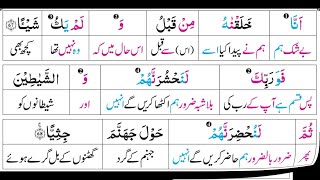 اَنَّا خَلَقْنٰهُ مِنْ قَبْلُ وَ لَمْ یَكُ شَیْـًٔا
بے شک ہم ہم نے پیدا کیا اسے (اس سے) قبل اس حال میں کہ وہ نہیں تھا کچھ بھی
فَوَرَبِّكَ لَنَحْشُرَنَّهُمْ وَ الشَّیٰطِیْنَ
پس قسم ہے آپ کے رب کی بلاشبہ ضرور ہم اکٹھا کریں گے انہیں اور شیطانوں کو
ثُمَّ لَنُحْضِرَنَّهُمْ حَوْلَ جَهَنَّمَ جِثِیًّا
پھر ضرور بالضرور ہم حاضر کریں گے انہیں جہنم کے گرد گھٹنوں کے بل گرے ہوئے